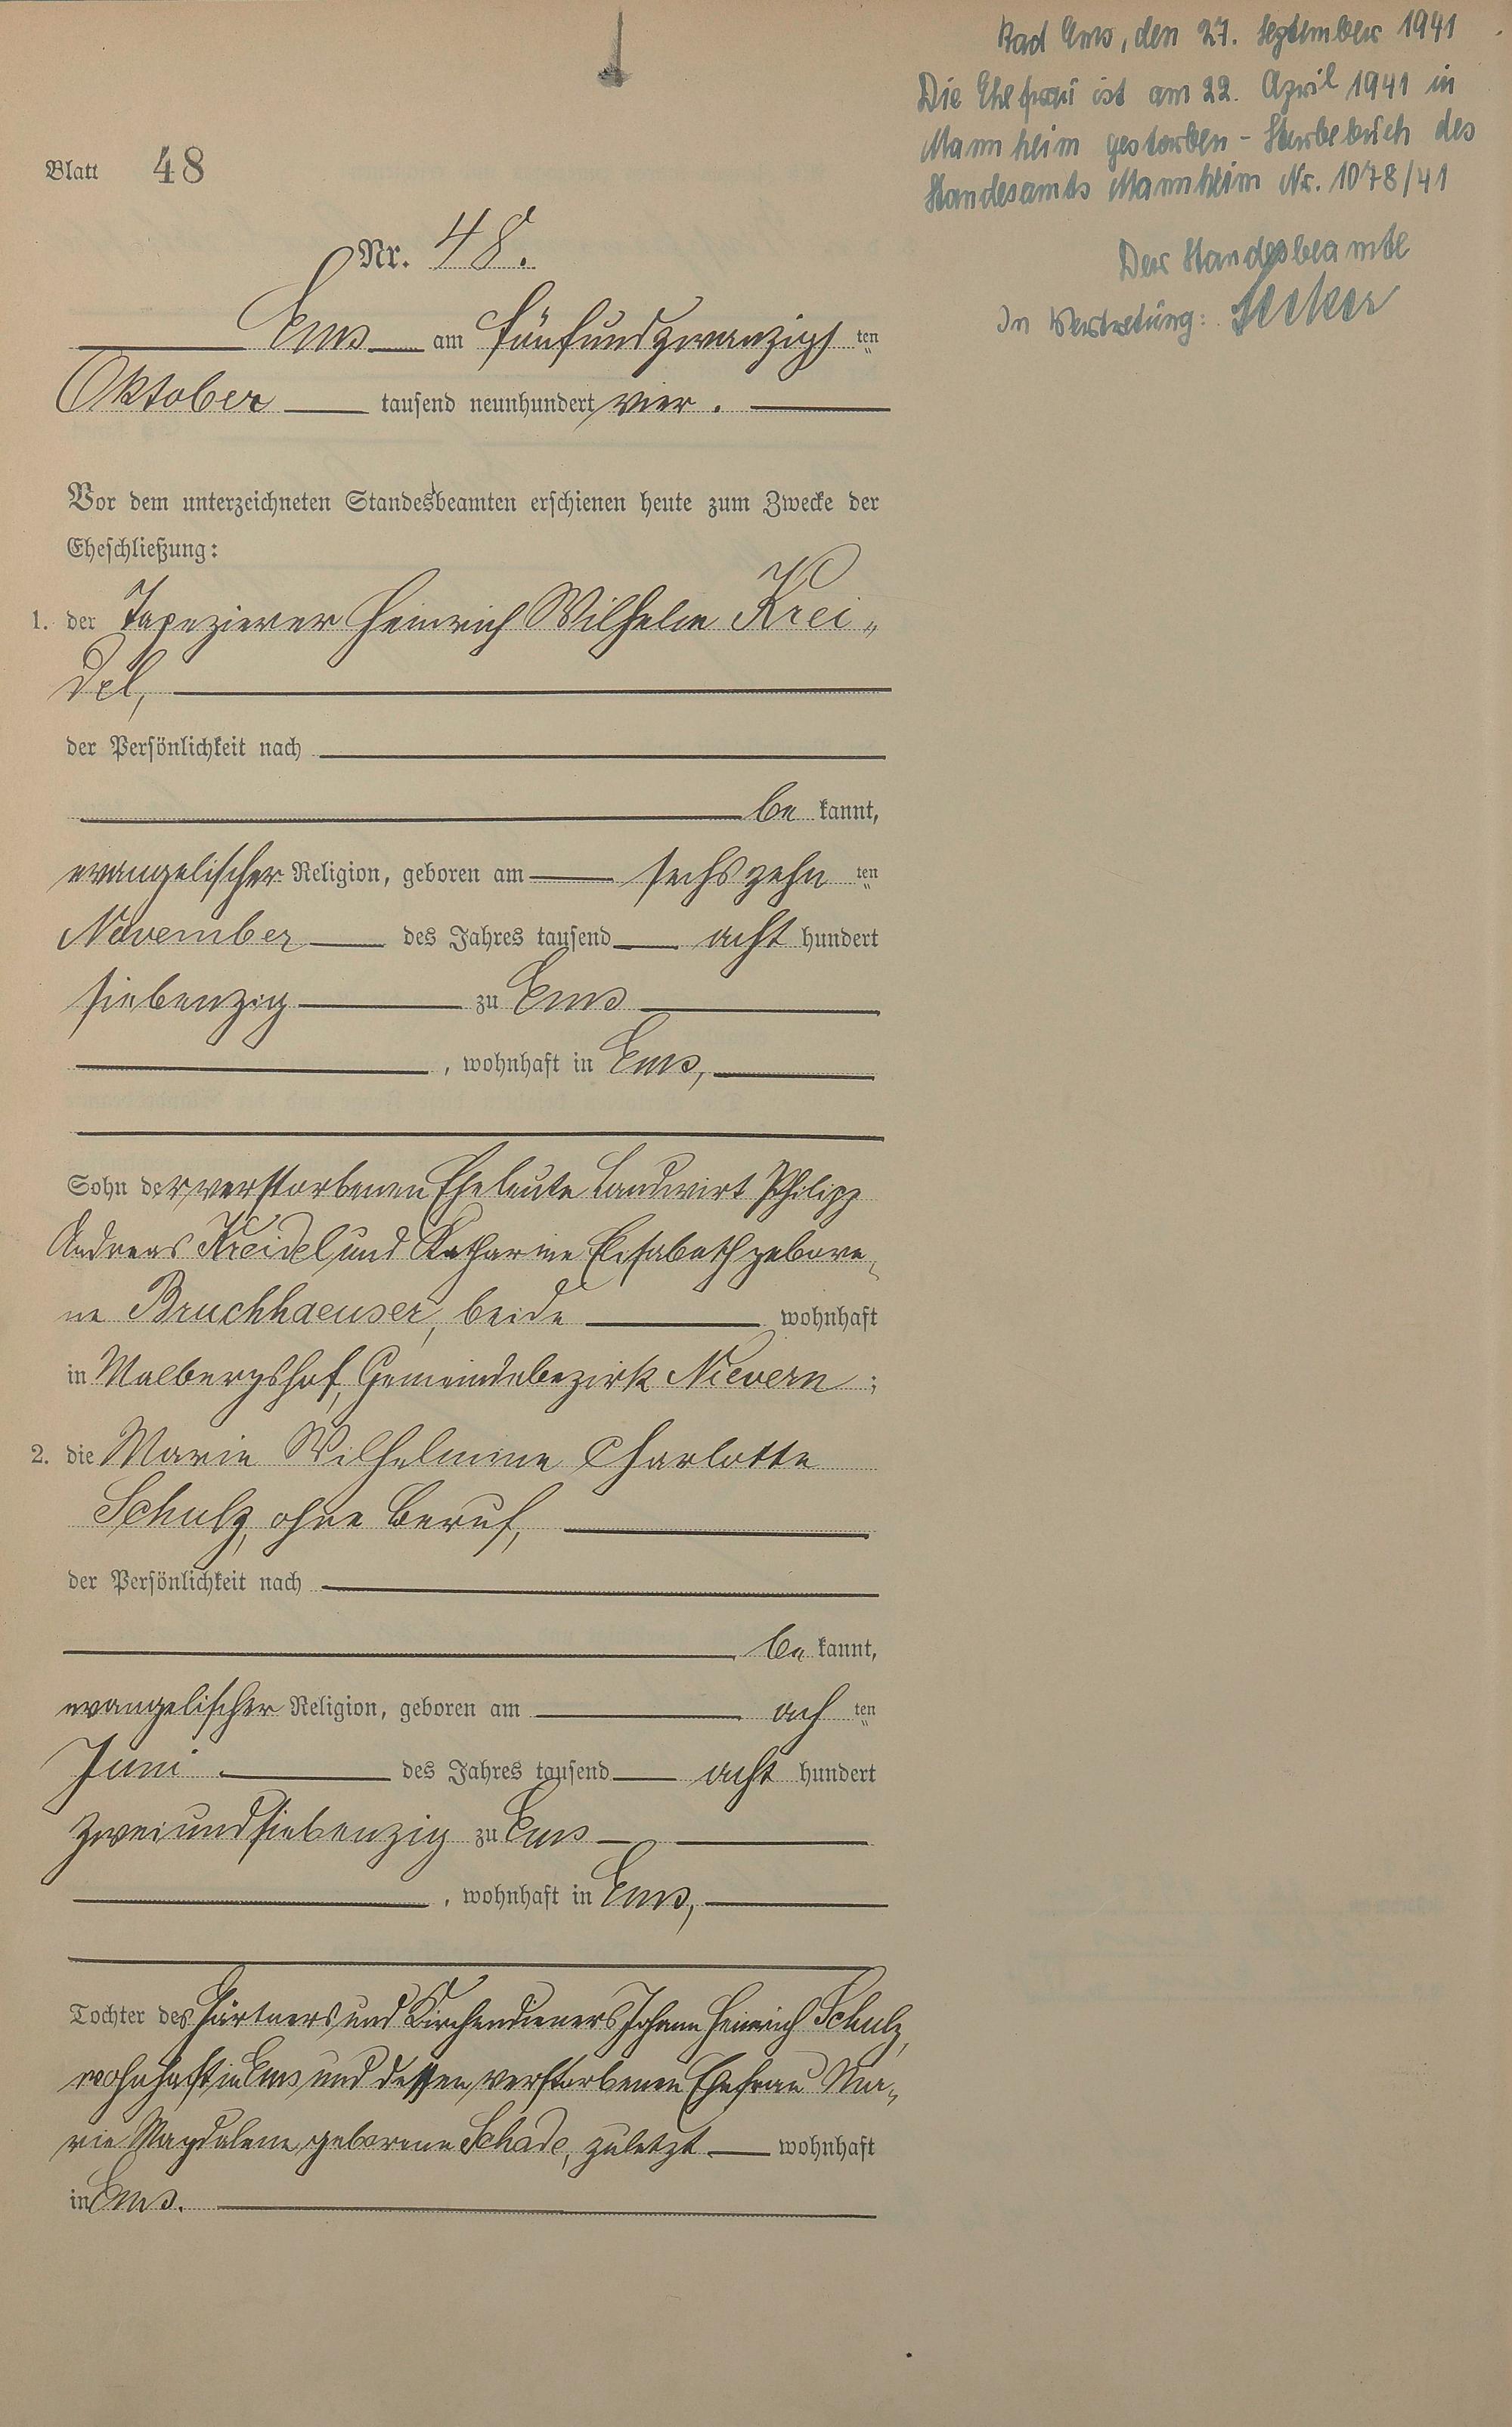 Blatt 48
Nr. 48.
Ems am fünfundzwanzigsten
Oktober tausend neunhundert vier.
Vor dem unterzeichneten Standesbeamten erschienen heute zum Zwecke der
Eheschließung:
1. der Tapezierer Heinrich Wilhelm Krei„
del,
der Persönlichkeit nach
be kannt,
evangelischer Religion, geboren am sechszehn ten
November des Jahres tausend acht hundert
siebenzig zu Ems
, wohnhaft in Ems,
Sohn der verstorbenen Eheleute Landwirt Philipp
Andreas Kreidel und Katharine Elisabeth gebore„
ne Bruchhaeuser, beide wohnhaft
in Malbergshof, Gemeindebezirk Nievern;
2. die Marie Wilhelmine Charlotte
Schulz, ohne Beruf,
der Persönlichkeit nach
be kannt,
evangelischer Religion, geboren am ach ten
Juni des Jahres tausend acht hundert
zweiundsiebenzig zu Ems
, wohnhaft in Ems,
Tochter des Gärtners und Kirchendieners Johann Heinrich Schulz,
wohnhaft in Ems und dessen verstorbenen Ehefrau Ma„
rie Magdalene, geborene Schade, zuletzt wohnhaft
in Ems.
Bad Ems, den 27. September 1941
Die Ehefrau ist am 22. April 1941 in
Mannheim gestorben - Sterbebuch des
Standesamts Mannheim Nr. 1078/41
Der Standesbeamte
In Vertretung: